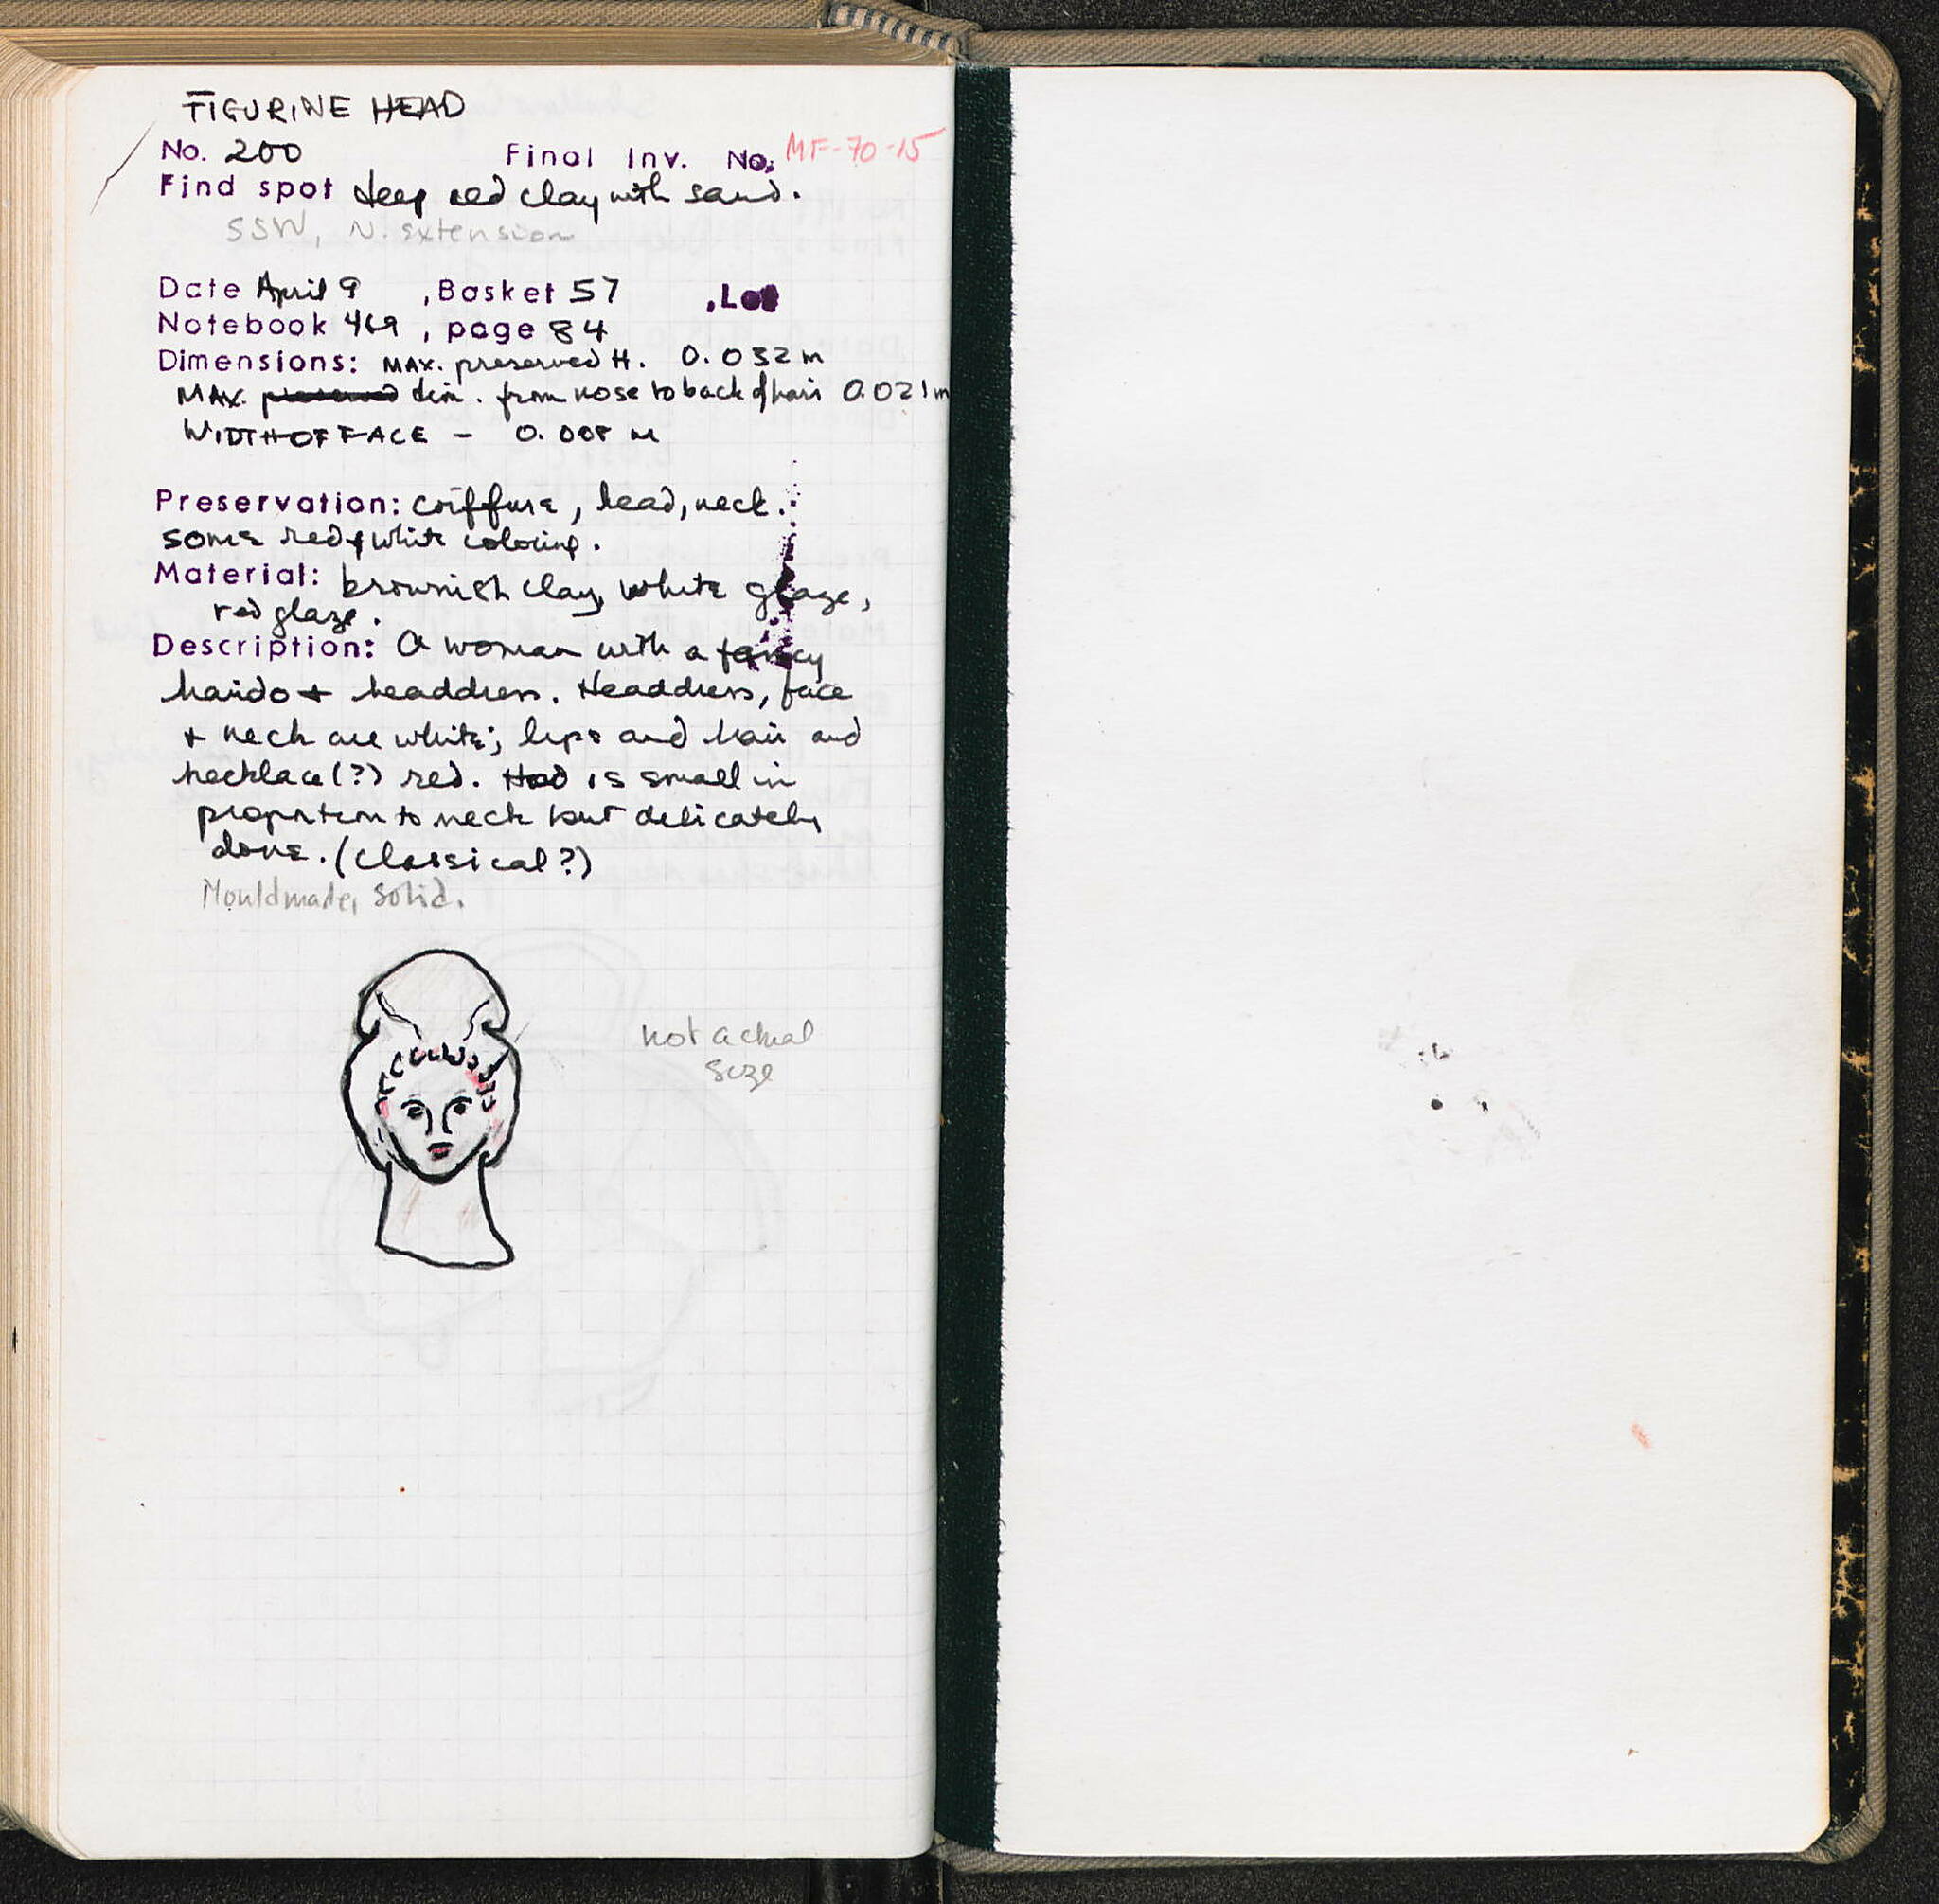 FIGURINE HEAD
No. 200 Final Inv. No. MF-70-15
Find spot deep red clay with sand.
SSW, N. extension
Date April 9 , Basket 57 , Lot
Notebook 469 , page 84
Dimensions: MAX. preserved H. 0.032 m
MAX. preserved dim. from nose to back of hair 0.021 m
WIDTH OF FACE - 0.008 M
Preservation: coiffure, head, neck.
some red & white coloring.
Material: brownish clay, white glaze,
red glaze.
Description: A woman with a fancy
hairdo + headdress. Headdress, face
+ neck are white; lips and hair and
necklace (?) red. Head is small in
proportion to neck but delicately
done. (Classical?)
Mouldmade, solid.
not actual
size